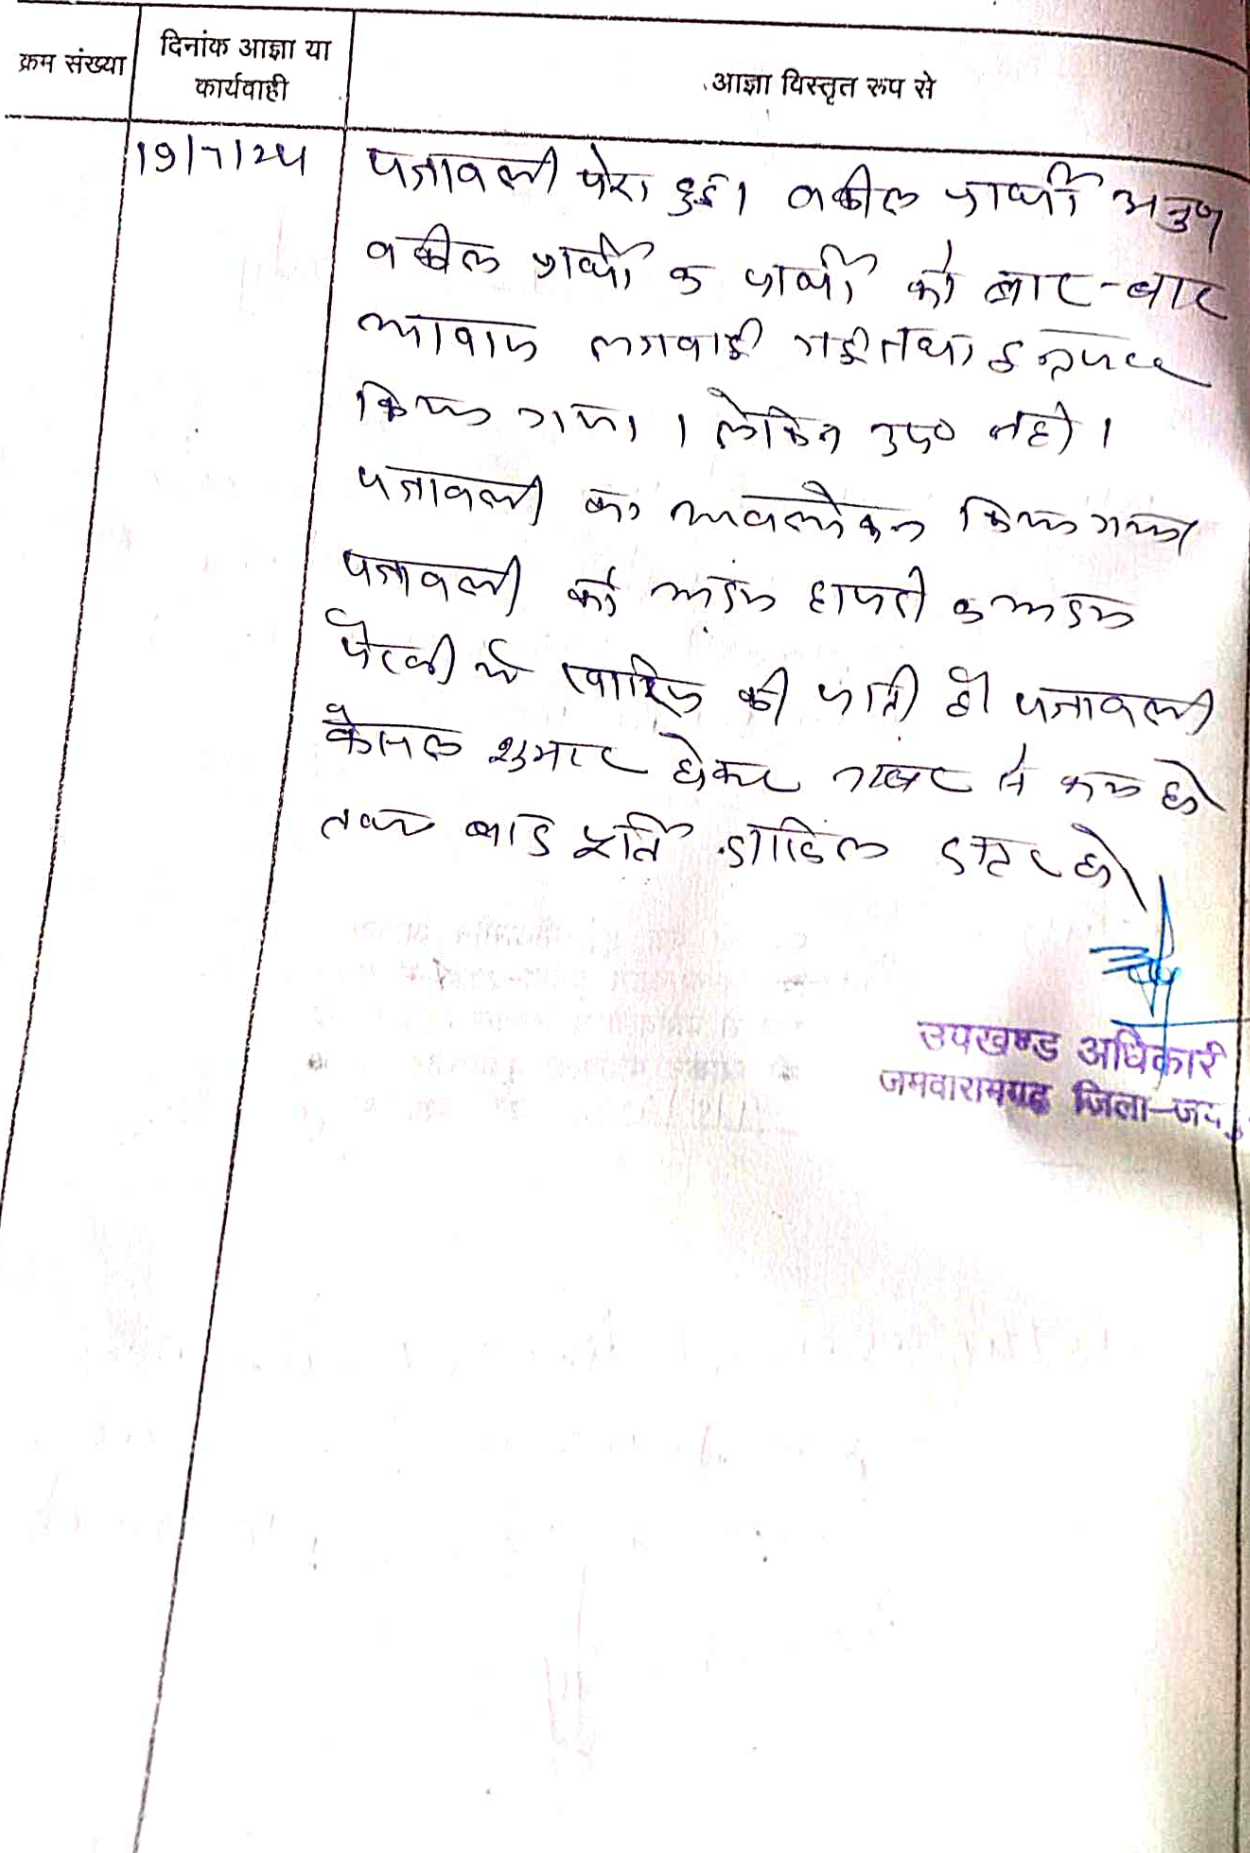 क्रम संख्या
दिनांक आज्ञा या
कार्यवाही
आज्ञा विस्तृत रूप से
19/7/24
पत्रावली पेश हुई। वकील प्रार्थी अनु०
वकील प्रार्थी व प्रार्थी को बार-बार
आवाज लगवाई गई तथा इन्तजार
किया गया। लेकिन उप० नहीं।
पत्रावली का अवलोकन किया गया
पत्रावली को अदम हाजरी व अदम
पैरवी में खारिज की जाती है पत्रावली
फैसल शुमार होकर नम्बर से कम हो
तथा बाद पूर्ति दाखिल दफ्तर हो
उपखण्ड अधिकारी
जमवारामगढ जिला-जय